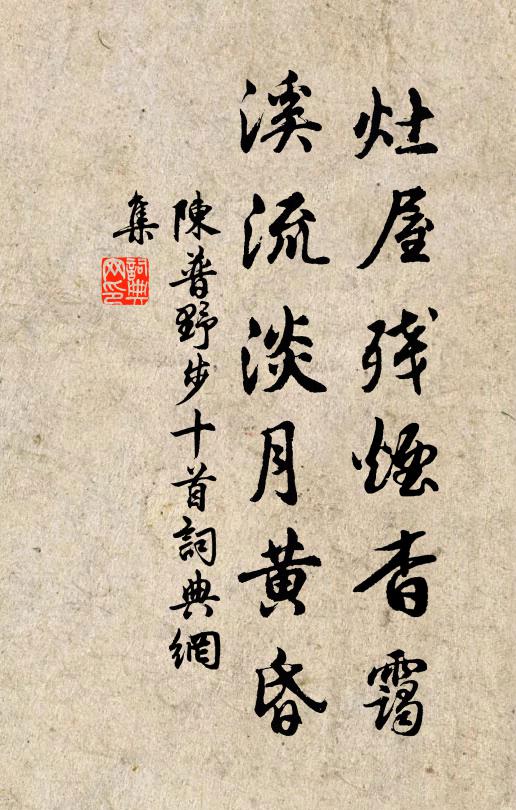 灶屋残煙杳靄
溪流淡月黄昏
陳普野步十首詞典網
集
詞典
网印